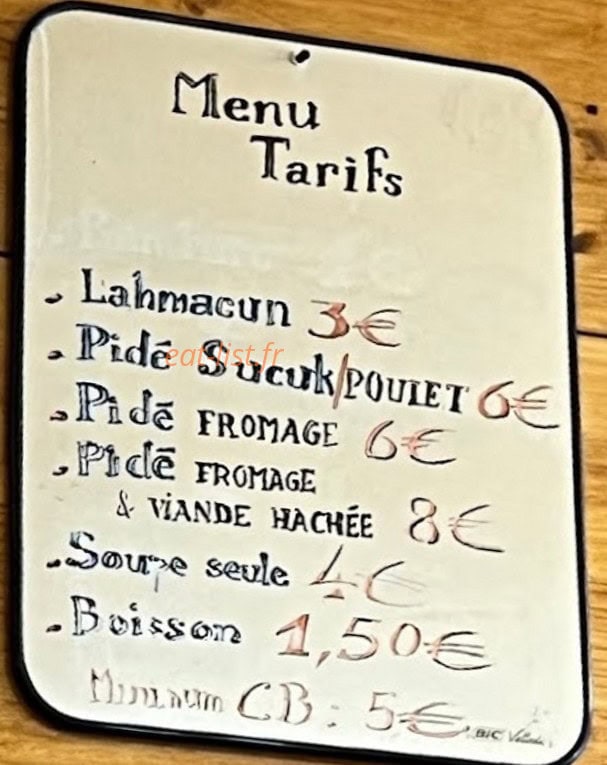 Menu
Tarifs
. Lahmacun 3€
. Pidé Sucuk/POULET 6€
eat-list.fr
. Pidé FROMAGE 6€
. Pidé FROMAGE
& VIANDE HACHÉE 8€
. Soupe seule 4€
. Boisson 1,50€
Minimum CB : 5€
BIC Velleda